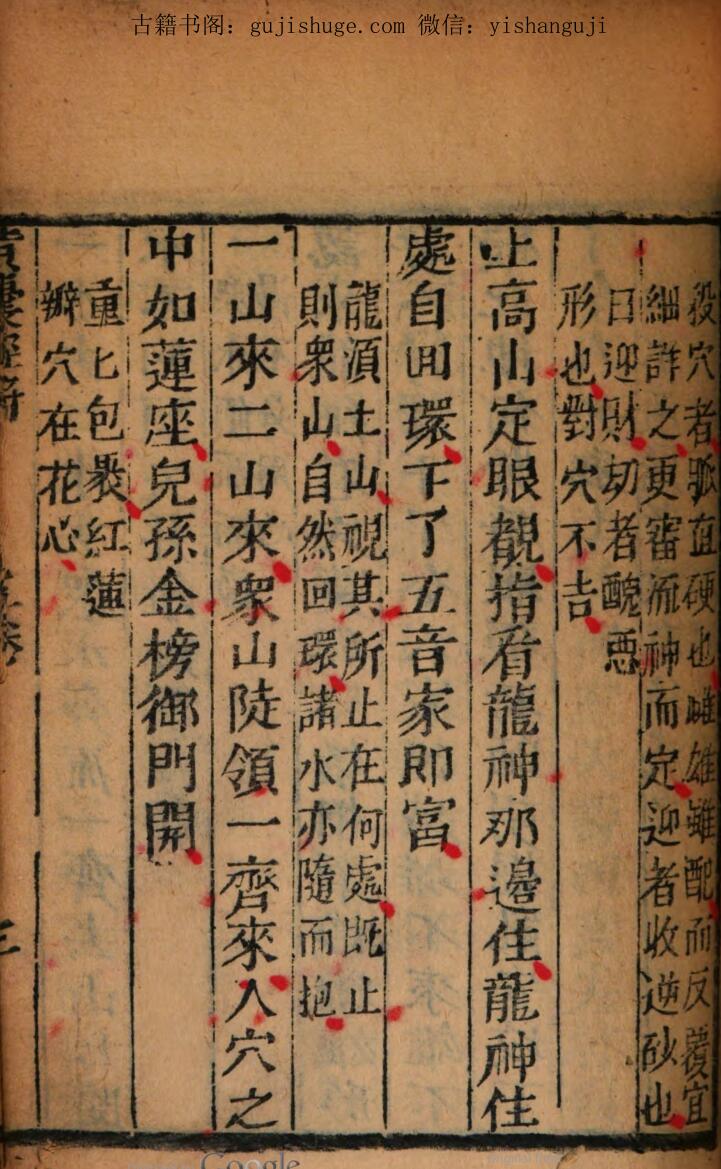 古籍书阁：gujishuge.com 微信：yishanguji
投穴者脈直硬也雌雄雖配而反覆宜
細詳之更審流神而定迎者收逆砂也
曰迎財切者醜惡
形也對穴不吉
上高山定眼覩指看龍神那邊住龍神住
處自囬環下了五音家即富
龍須土山視其所止在何處既止
則衆山自然回環諸水亦隨而抱
一山來二山來衆山陡領一齊來人穴之
中如蓮座兒孫金榜御門開
重匕包褁紅蓮
瓣穴在花心
囊經
卷
三
Google